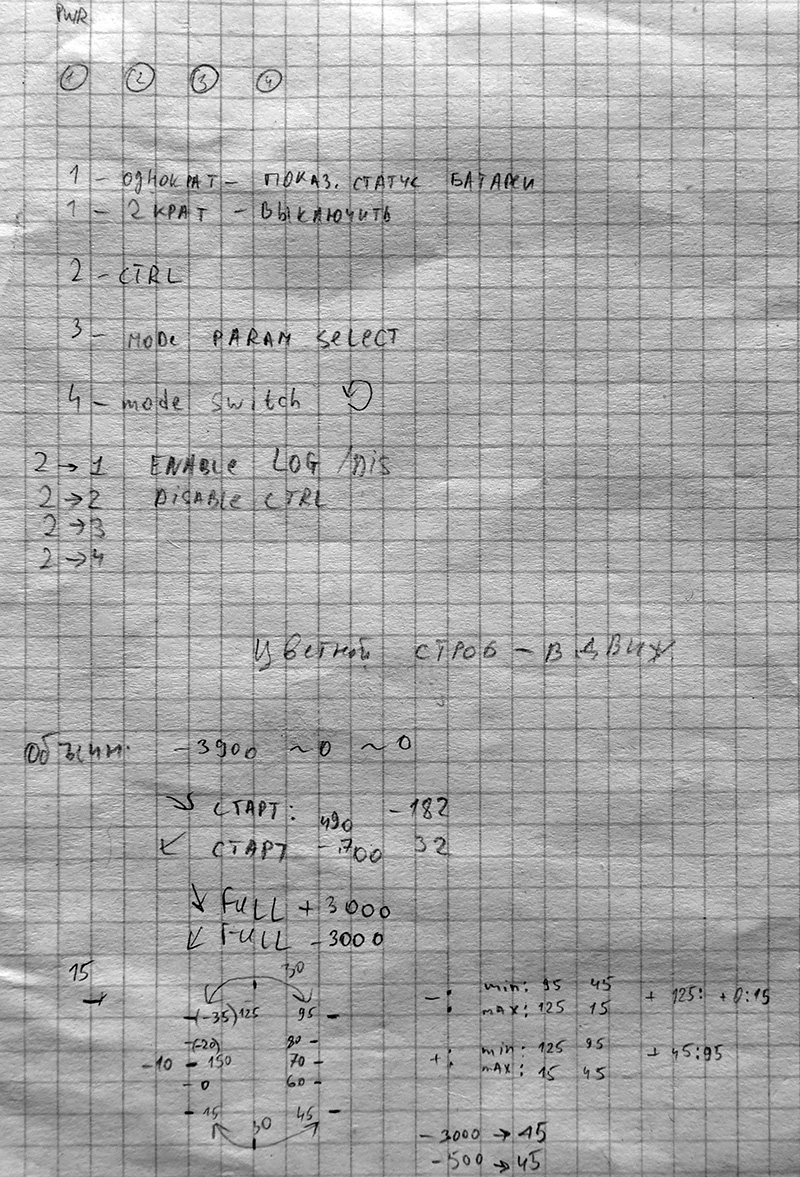 PWR
1 2 3 4
1 - однократ - показ. статус батареи
1 - 2 крат - выключить
2 - CTRL
3 - MODE PARAM SELECT
4 - mode switch
2 → 1 ENABLE LOG / DIS
2 → 2 DISABLE CTRL
2 → 3
2 → 4
Цветной строб - в движ
-3900 ~0 ~0
↘ СТАРТ: 490 -182
↙ СТАРТ -700 32
↘ FULL +3000
↙ FULL -3000
15 30
(-35) 125 95
(-20) 80
-10 150 70
0 60
15 45
30
-: min: 95 45 + 125: +0:15
max: 125 15
+: min: 125 95 + 45:95
max: 15 45
-3000 → 15
-500 → 45